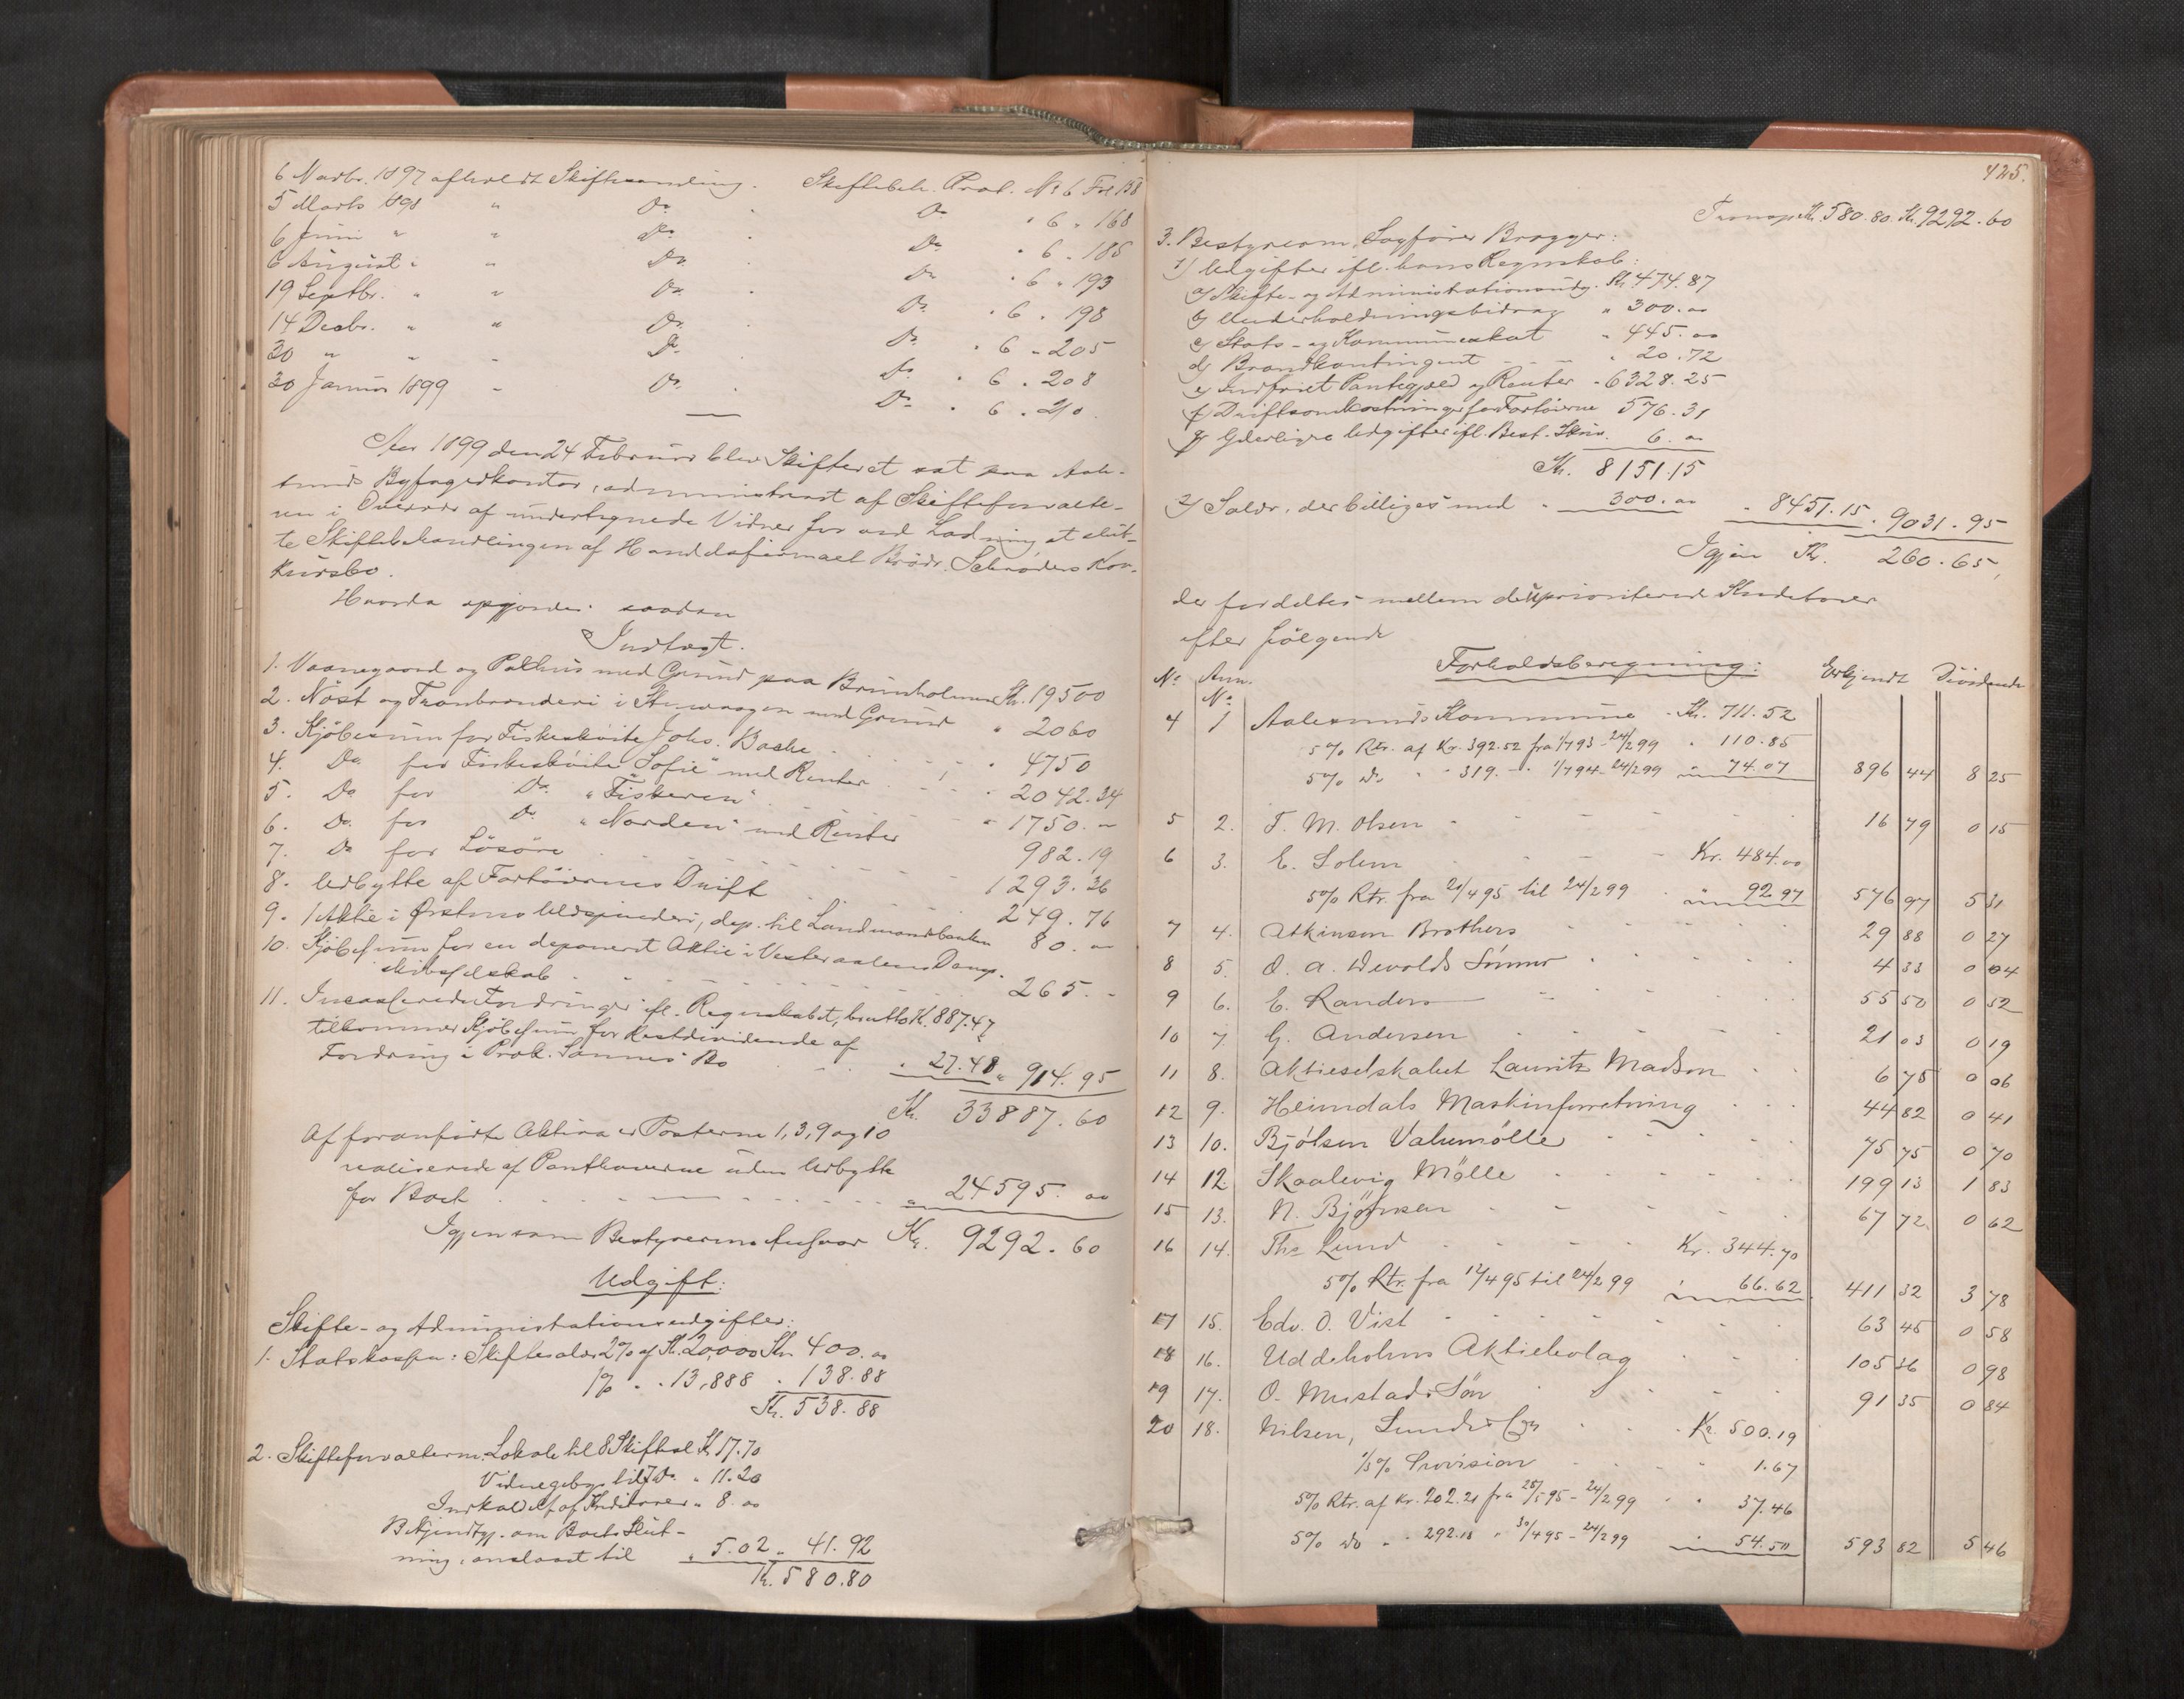 6 Novbr. 1897 afholdt Skiftesamling. Skiftebeh. Prot. No 6 Fol 158
5 Marts 1898 " Do. Do. " 6 " 168
6 Juni " " Do. Do. " 6 . 185
6 August " " Do. Do. " 6 " 193
19 Septbr. " " Do. Do. " 6 . 198
14 Decbr. " " Do. Do. " 6 - 205
30 " " - Do. Do. " 6 . 208
30 Januar 1899 - Do. Do. " 6 . 210.
Aar 1899 den 24 Februar blev Skifteret sat paa Aale-
sunds Byfogedkontor, administreret af Skifteforvalte-
ren i Overvær af undertegnede Vidner for ved Lodning at slut-
te Skiftebehandlingen af Handelsfirmaet Brödr. Schröders Kon-
kursbo.
Hvorda opgjordes saadan
Indtægt.
1. Vaanegaard og Pakhus med Grund paa Brunholmen Kr. 19500
2. Nöst og Tranbrænderi i Stenvaagen med Grund " 2060
3. Kjöbesum for Fiskeskøite Johs. Bache . " 4750
4. Do. for Fiskeskøite "Sofie" med Renter . . " 2042.34
5. Do. for Do. "Fiskeren" . . " 1750. -
6. Do. for Do. "Norden" med Renter 982.19
7. Do for Lösöre . . 1293.36
8. Udbytte af Fartöiernes Drift . . 249.76
9. 1 Aktie i Ørstens Uldspinderi, dep. til Landmandsbanken 80. oo
10. Kjöbesum for en deponeret Aktie i Vesteraalens Damp-
skibsselskab . . . 265. -
11. Incasserede Fordringer ifl. Regnskabet, brutto Kr. 887.47
tilkommer Kjöbesum for Restdividende af
Fordring i Prok. Sannes Bo . . " 27.48 " 914.95
Kr. 33887.60
Af foranførte Aktiva er Posterne 1, 3, 9 og 10
realiserede af Panthaverne uden Udbytte
for Boet . . . " 24595. oo
Igjen som Bestyrerens Ansvar Kr. 9292.60
Udgift:
Skifte- og Administrationsudgifter:
1. Statskassen: Skiftesalær 2% af Kr. 20,000 Kr. 400. oo
1% " . 13,888 . 138.88
Kr. 538.88
2. Skifteforvalteren: Lokale til 8 Skiftesal. Kr. 17.70
Vidnegebyr til 7 Do. " 11.20
Indkaldelse af Kreditorer " 8. oo
Bekjendtgj. om Boets Slut-
ning, anslaaet til " 5.02 " 41.92
Kr. 580.80
425.
Transp. Kr. 580.80. Kr. 9292.60
3. Bestyreren, Sagfører Brøgger:
1) Udgifter ifl. hans Regnskab:
a) Skifte- og Administrationsudg. Kr. 474.87
b) Underholdningsbidrag " 300. oo
c) Stats- og Kommuneskat " 445. oo
d) Brandkontingent - - - " 20.72
e) Indfriet Pantegjæld og Renter - 6328.25
f) Driftsomkostninger for Fartöierne 576.31
g) Yderligre Udgifter ifl. Best. Skriv. 6. oo
Kr. 8151.15
2) Salær, der billiges med " 300. oo " 8451.15 . 9031.95
Igjen Kr. 260.65,
der fordeltes mellem de uprioriterede Kreditorer
efter følgende
Forholdsberegning:
No. Anm. No. Erkjendt Dividende
4 1 Aalesunds Kommune - Kr. 711.52
5% Rtr. af Kr. 392.52 fra 1/7 93 - 24/2 99 " 110.85
5% Do " " 319. - " 1/7 94 - 24/2 99 " 74.07 896 44 8 25
5 2. T. M. Olsen - - - 16 79 0 15
6 3. E. Solem - - - Kr. 484.oo
5% Rtr. fra 21/4 95 til 24/2 99 " 92 97 576 97 5 31
7 4. Atkinson Brothers 29 88 0 27
8 5. O. A. Devolds Sönner 4 33 0 04
9 6. E. Randers 55 50 0 52
10 7. G. Andersen 21 03 0 19
11 8. Aktieselskabet Lauritz Madsen 6 75 0 06
12 9. Heimdals Maskinforretning 44 82 0 41
13 10. Bjölsen Valsemölle 75 75 0 70
14 12. Skaalevig Mölle 199 13 1 83
15 13. N. Björnsen 67 72 0 62
16 14. Ths Lund Kr. 344.70
5% Rtr. fra 12/4 95 til 24/2 99 " 66.62 411 32 3 78
17 15. Edv. O. Vist 63 45 0 58
18 16. Uddeholms Aktiebolag 105 36 0 98
19 17. O. Mustad & Sön 91 35 0 84
20 18. Nilsen, Lund & Co. Kr. 500.19
1/3% Provision 1.67
5% Rtr. af Kr. 202.21 fra 25/5 95 - 24/2 99 " " 37.46
5% do " " 292.18 " 30/4 95 - 24/2 99 " 54.50 593 82 5 46